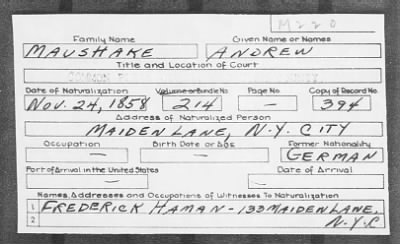 M220
Family Name Given Name or Names
MAUSHAKE ANDREW
Title and Location of Court
COMMON
Date of Naturalization Volume or Bundle No Page No Copy of Record No.
NOV. 24, 1858 214 — 394
Address of Naturalized Person
MAIDEN LANE, N.Y. CITY
Occupation Birth Date or Age Former Nationality
— — GERMAN
Port of Arrival in the United States Date of Arrival
— —
Names, Addresses and Occupations of Witnesses To Naturalization
1 FREDERICK HAMAN - 133 MAIDEN LANE,
2 N.Y.C